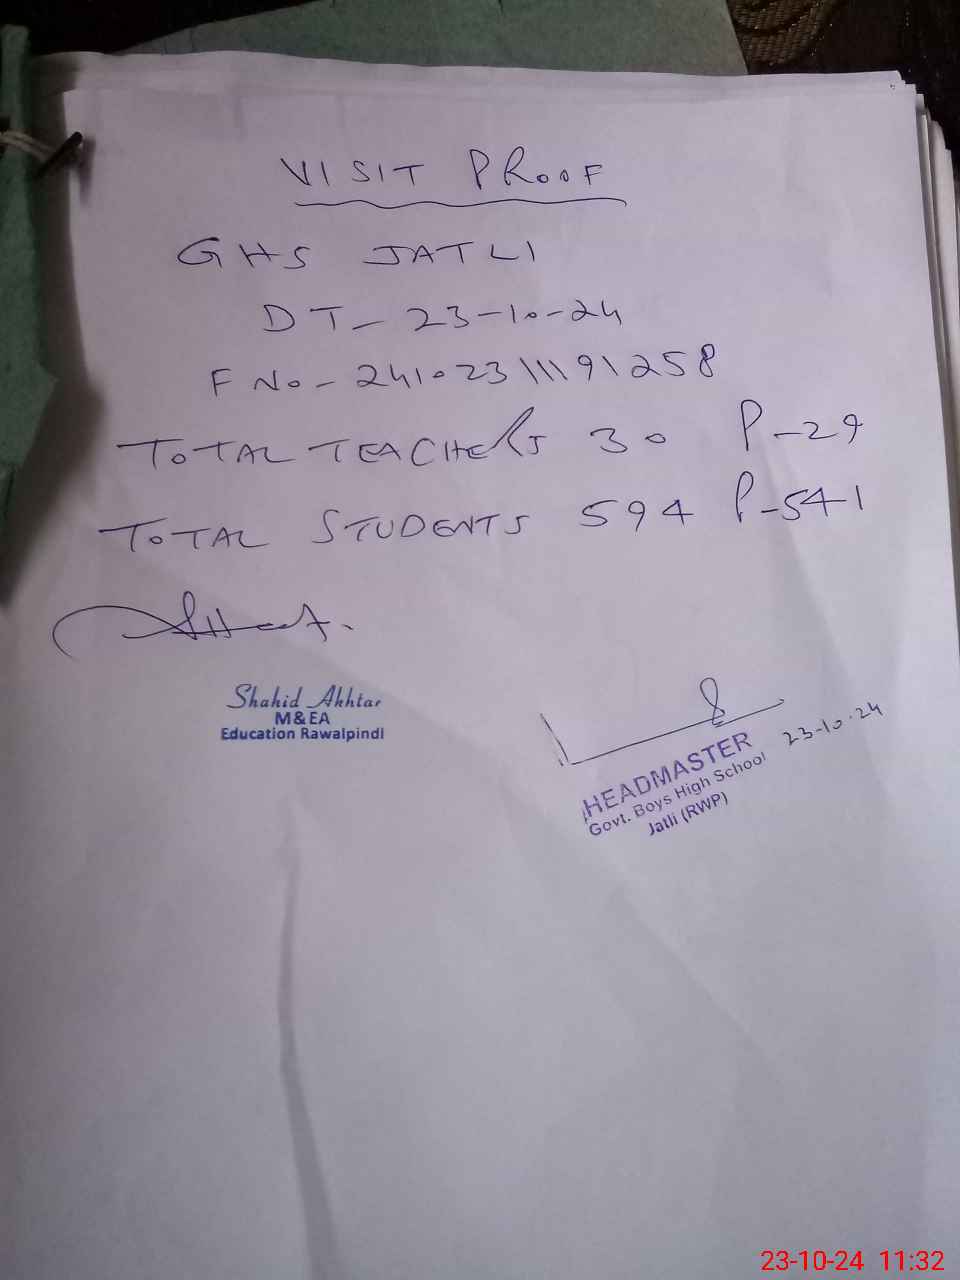 VISIT PROOF
GHS JATLI
DT- 23-10-24
F No- 2410231119125​8
TOTAL TEACHERS 30 P-29
TOTAL STUDENTS 594 P-541
Shahid Akhtar
M&EA
Education Rawalpindi
23-10-24
HEADMASTER
Govt. Boys High School
Jatli (RWP)
23-10-24 11:32